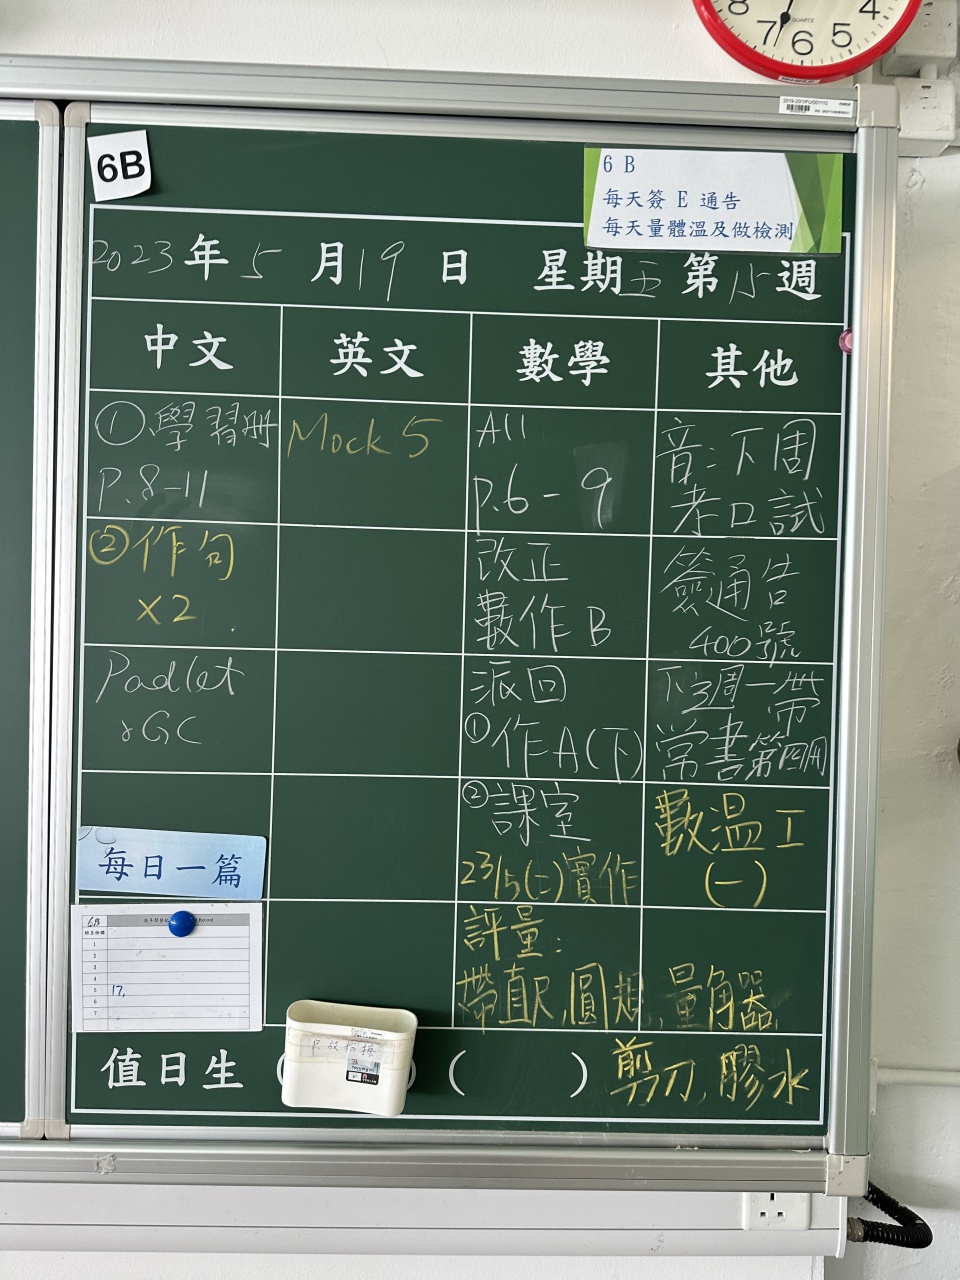 8 7 6 5 4
QUARTZ
6B
6 B
每天簽 E 通告
每天量體溫及做檢測
2023年5月19日 星期五 第15週
中文 英文 數學 其他
①學習册
P.8-11
②作句
x2
Padlet
&GC
每日一篇
6B
Record
1
2
3
4
5 17,
6
7
Mock 5
All
P.6-9
改正
數作B
派回
①作A(下)
②課室
23/5(二)實作
評量:
帶直尺,圓規,量角器
音:下周
考口試
簽通告
400號
下週一帶
常書第四冊
數溫工
(一)
值日生 ( ) 剪刀,膠水